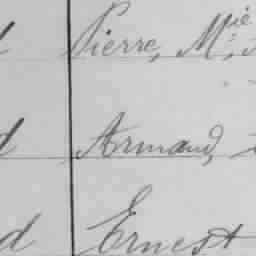 Pierre, Mie
d Armand,
d Ernest